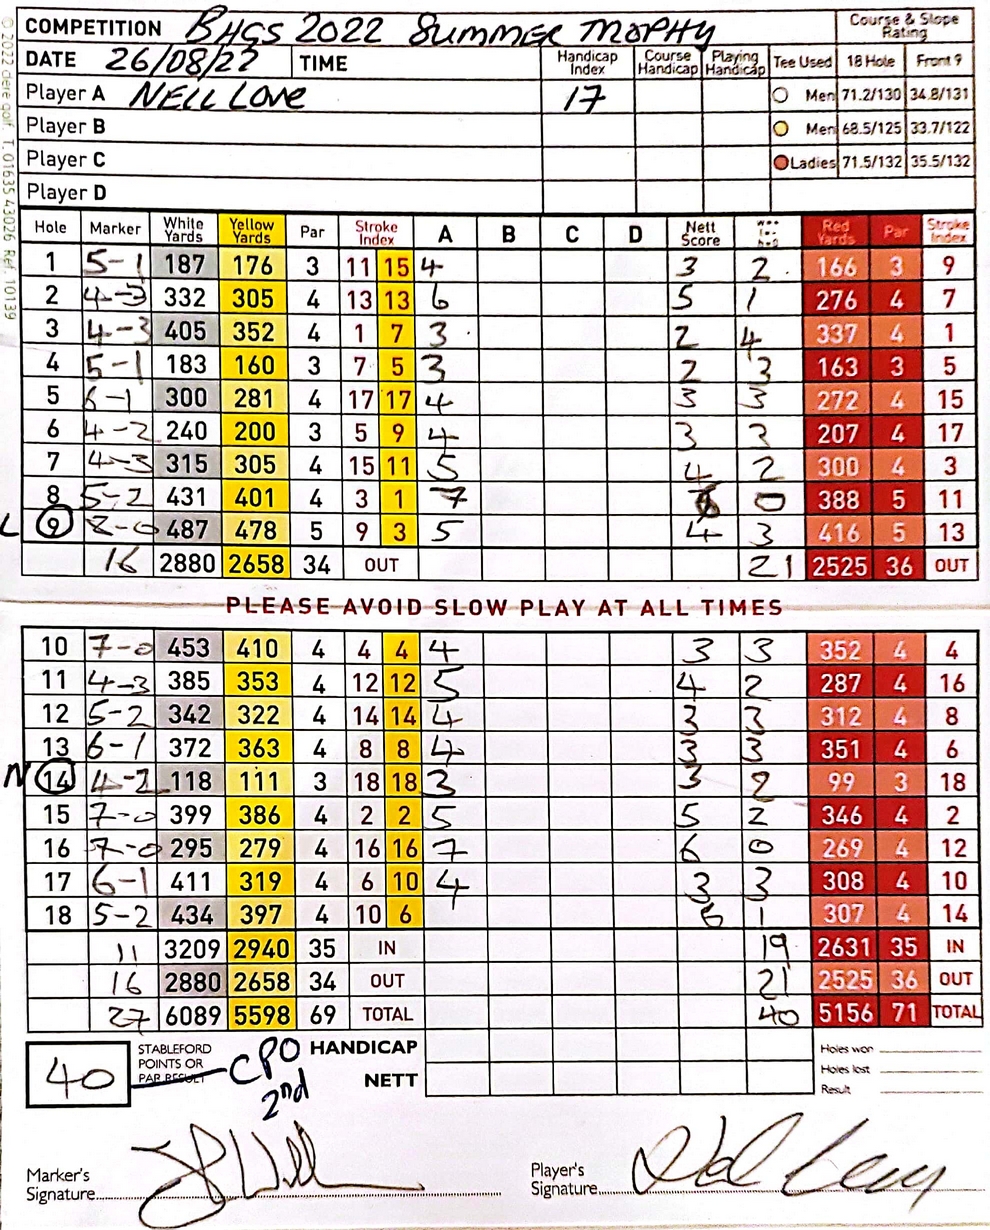 © 2022 dere golf. T. 01635 43026 Ref. 10139
COMPETITION BHGS 2022 SUMMER TROPHY Course & Slope Rating
DATE 26/08/22 TIME Handicap Index Course Handicap Playing Handicap Tee Used 18 Hole Front 9
Player A 17 Men 71.2/130 34.8/131
Player B Men 68.5/125 33.7/122
Player C Ladies 71.5/132 35.5/132
Player D
Hole Marker White Yards Yellow Yards Par Stroke Index A B C D Nett Score Red Yards Par Stroke Index
1 5-1 187 176 3 11 15 4 3 2 166 3 9
2 4-3 332 305 4 13 13 6 5 1 276 4 7
3 4-3 405 352 4 1 7 3 2 4 337 4 1
4 5-1 183 160 3 7 5 3 2 3 163 3 5
5 6-1 300 281 4 17 17 4 3 3 272 4 15
6 4-2 240 200 3 5 9 4 3 3 207 4 17
7 4-3 315 305 4 15 11 5 4 2 300 4 3
8 5-2 431 401 4 3 1 7 0 388 5 11
L 9 8-0 487 478 5 9 3 5 4 3 416 5 13
16 2880 2658 34 OUT 21 2525 36 OUT
PLEASE AVOID SLOW PLAY AT ALL TIMES
10 7-0 453 410 4 4 4 4 3 3 352 4 4
11 4-3 385 353 4 12 12 5 4 2 287 4 16
12 5-2 342 322 4 14 14 4 3 3 312 4 8
13 6-1 372 363 4 8 8 4 3 3 351 4 6
N 14 4-2 118 111 3 18 18 3 3 2 99 3 18
15 7-0 399 386 4 2 2 5 5 2 346 4 2
16 7-0 295 279 4 16 16 7 6 0 269 4 12
17 6-1 411 319 4 6 10 4 3 3 308 4 10
18 5-2 434 397 4 10 6 6 1 307 4 14
11 3209 2940 35 IN 19 2631 35 IN
16 2880 2658 34 OUT 21 2525 36 OUT
27 6089 5598 69 TOTAL 40 5156 71 TOTAL
40 STABLEFORD POINTS OR PAR RESULT CPO 2nd HANDICAP Holes won
Holes lost
NETT Result
Marker's Signature
Player's Signature